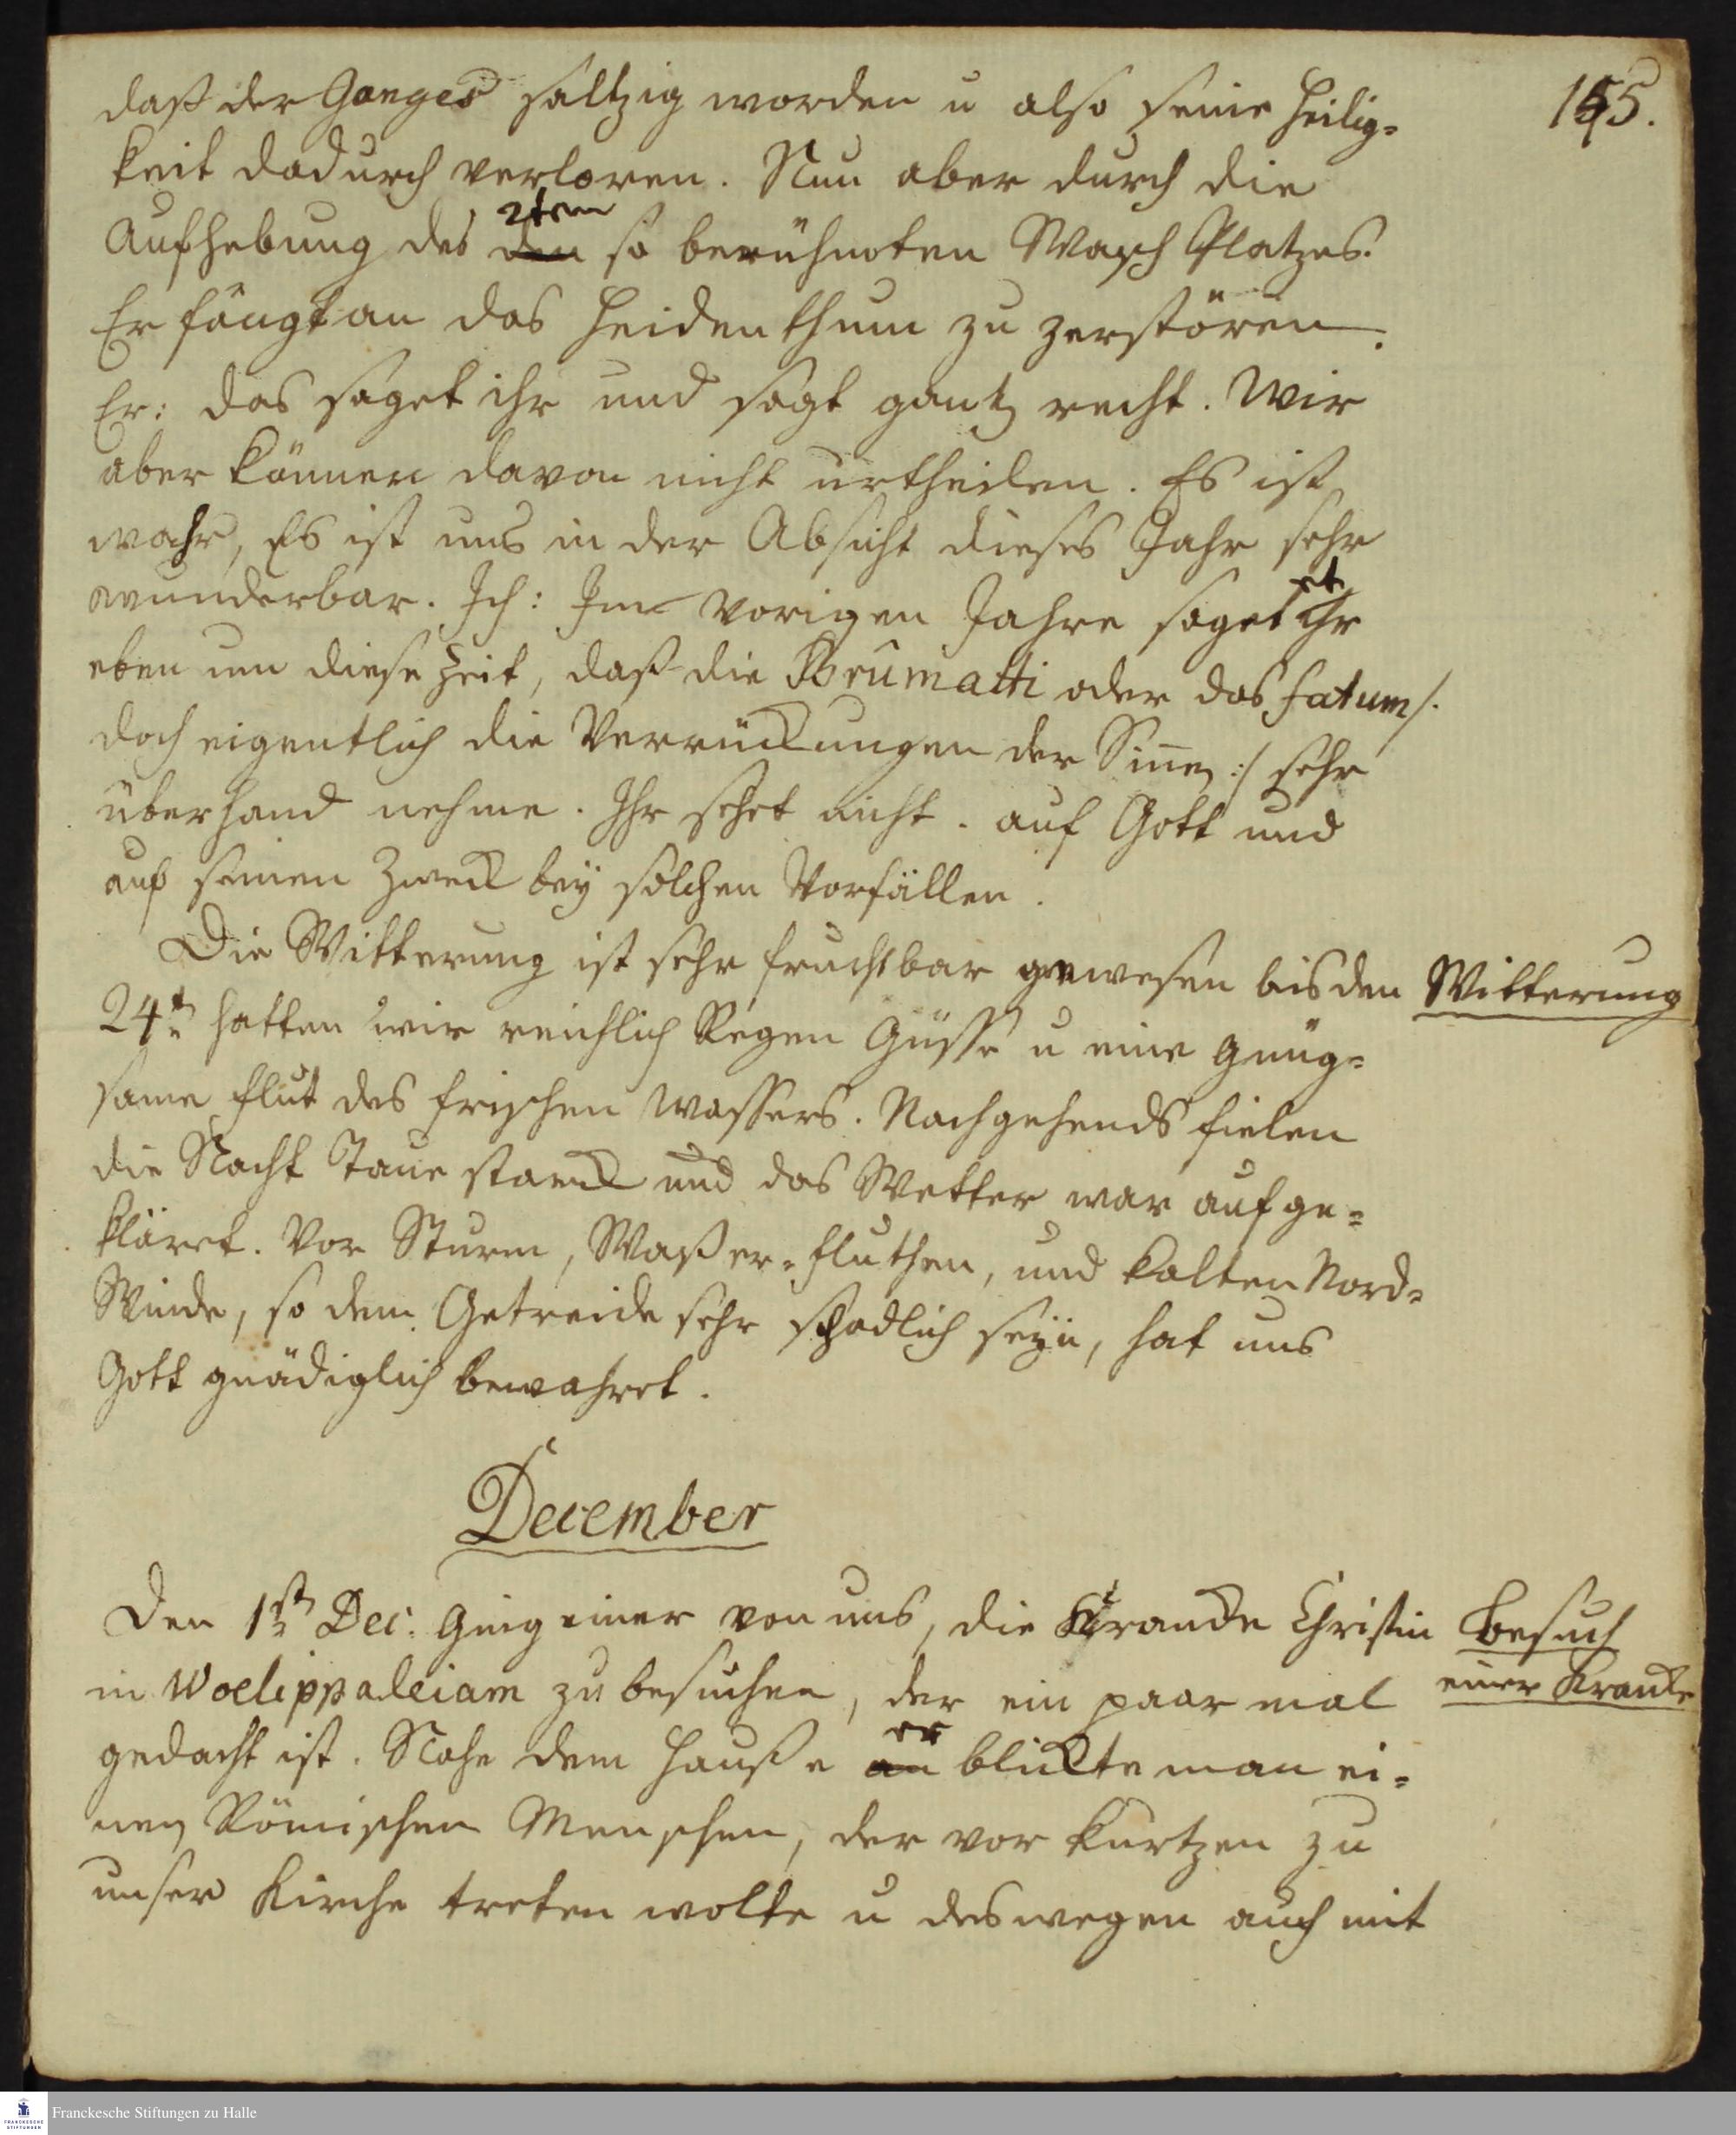 155.
daß der Ganges saltzig worden u also seine Heilig-
keit dadurch verloren. Nun aber durch die
Aufhebung des 2ten so berühmten Wasch Platzes.
Er fängt an das Heidenthum zu zerstören.
Er: das saget ihr und sagt gantz recht. Wir
aber können davon nicht urtheilen. Es ist
wahr, Es ist uns in der Absicht dieses Jahr sehr
wunderbar. Ich: Im vorigen Jahre saget et Ihr
eben um diese Zeit, daß die Brumatti oder das fatum /.
doch eigentlich die Verrückungen der Sinnen :/ sehr
überhand nehme. Ihr sehet nicht. auf Gott und
auf seinen Zweck bey solchen Vorfällen.
Die Witterung ist sehr fruchtbar gewesen bis den
Witterung
24t. hatten wir reichlich Regen Güsse u eine gnüg-
same Flut des frischen Wassers. Nachgehends fielen
die Nacht Taue starck und das Wetter war aufge-
kläret. Vor Sturm, Waßer-Fluthen, und kalten Nord-
Winde, so dem Getreide sehr schadlich seyn, hat uns
Gott gnädiglich bewahret.
December
Den 1st Dec: Ging einer von uns, die Krancke Christin
Besuch
in Woelippaleiam zu besuchen, der ein paar mal
einer Krancke
gedacht ist. Nahe dem Hauße er blickte man ei-
nen Römischen Menschen, der vor kurtzen zu
unser Kirche treten wolte u deswegen auch mit
Franckesche Stiftungen zu Halle